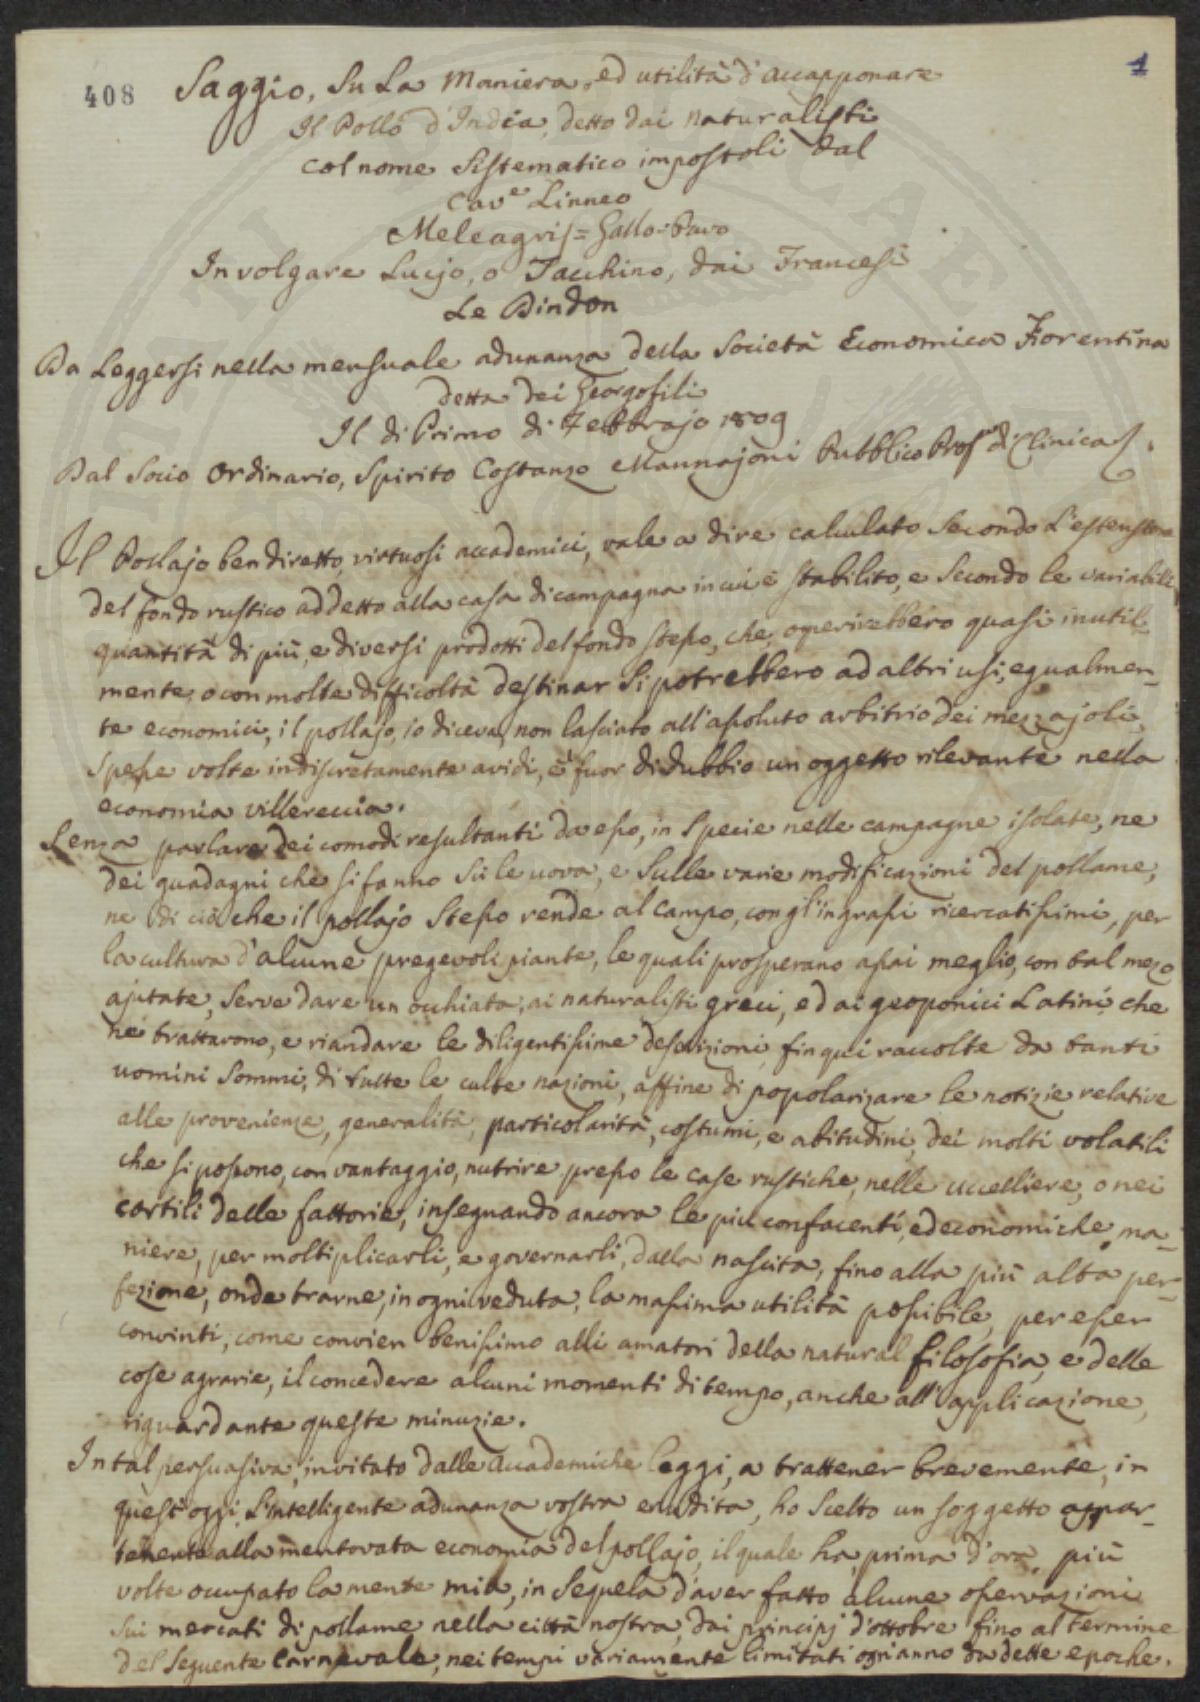 408
1
Saggio, Su La Maniera, ed utilità d'accapponare
Il Pollo d'India, detto dai naturalisti
col nome Sistematico impostoli dal
Cav.e Linneo
Meleagris = Gallo-Pavo
In volgare Lucio, o Tacchino, dai Francesi
Le Dindon
Da Leggersi nella mensuale adunanza della Società Economica Fiorentina
detta dei Georgofili
Il di Primo di Febbrajo 1809
Dal Socio Ordinario, Spirito Costanzo Mannajoni Pubblico Prof.re di Clinica
Il Pollajo ben diretto, virtuosi accademici, vale a dire calculato Secondo L'estensione
del fondo rustico addetto alla casa di campagna in cui è stabilito, e Secondo le variabili
quantità di più, e diversi prodotti del fondo stesso, che, operirebbero quasi inutil-
mente, o con molta difficoltà destinar si potrebbero ad altri usi, egualmen-
te economici, il pollajo, io diceva, non lasciato all'assoluto arbitrio dei mezzajoli,
Spesse volte indiscretamente avidi, è fuor di dubbio un oggetto rilevante nella
economia villereccia.
Senza parlare dei comodi resultanti da esso, in Specie nelle campagne isolate, ne
dei guadagni che si fanno sù le uova, e Sulle varie modificazioni del pollame,
ne di ciò che il pollajo Stesso rende al campo, con gl'ingrassi ricercatissimi, per
la cultura d'alcune pregevoli piante, le quali prosperano assai meglio, con tal mezo
ajutate, Serve dare un occhiata, ai naturalisti greci, ed ai geoponici Latini che
ne trattarono, e riandare le diligentissime descrizioni fin qui raccolte da tanti
uomini Sommi, di tutte le culte nazioni, affine di popolarizare le notizie relative
alle provenienze, generalità, particolarità, costumi, e abitudini, dei molti volatili
che si possono, con vantaggio, nutrire presso le case rustiche, nelle uccelliere, o nei
cortili delle fattorie, insegnando ancora le più confacenti, ed economiche, ma-
niere, per moltiplicarli, e governarli, dalla nascita, fino alla più alta per-
fezione, onde trarne, in ogni veduta, la massima utilità possibile, per esser
convinti, come convien benissimo alli amatori della natural filosofia, e delle
cose agrarie, il concedere alcuni momenti di tempo, anche all'applicazione,
riguardante queste minuzie.
In tal persuasiva, invitato dalle Accademiche leggi, a trattener brevemente, in
quest'oggi, L'intelligente adunanza vostra erudita, ho Scelto un soggetto appar-
tenente alla mentovata economia del pollajo, il quale ha, prima d'ora, più
volte occupato la mente mia, in Sequela d'aver fatto alcune osservazioni
Sui mercati di pollame nella città nostra, dai principj d'ottobre fino al termine
del Seguente Carnevale, nei tempi variamente limitati ogni anno da dette epoche.